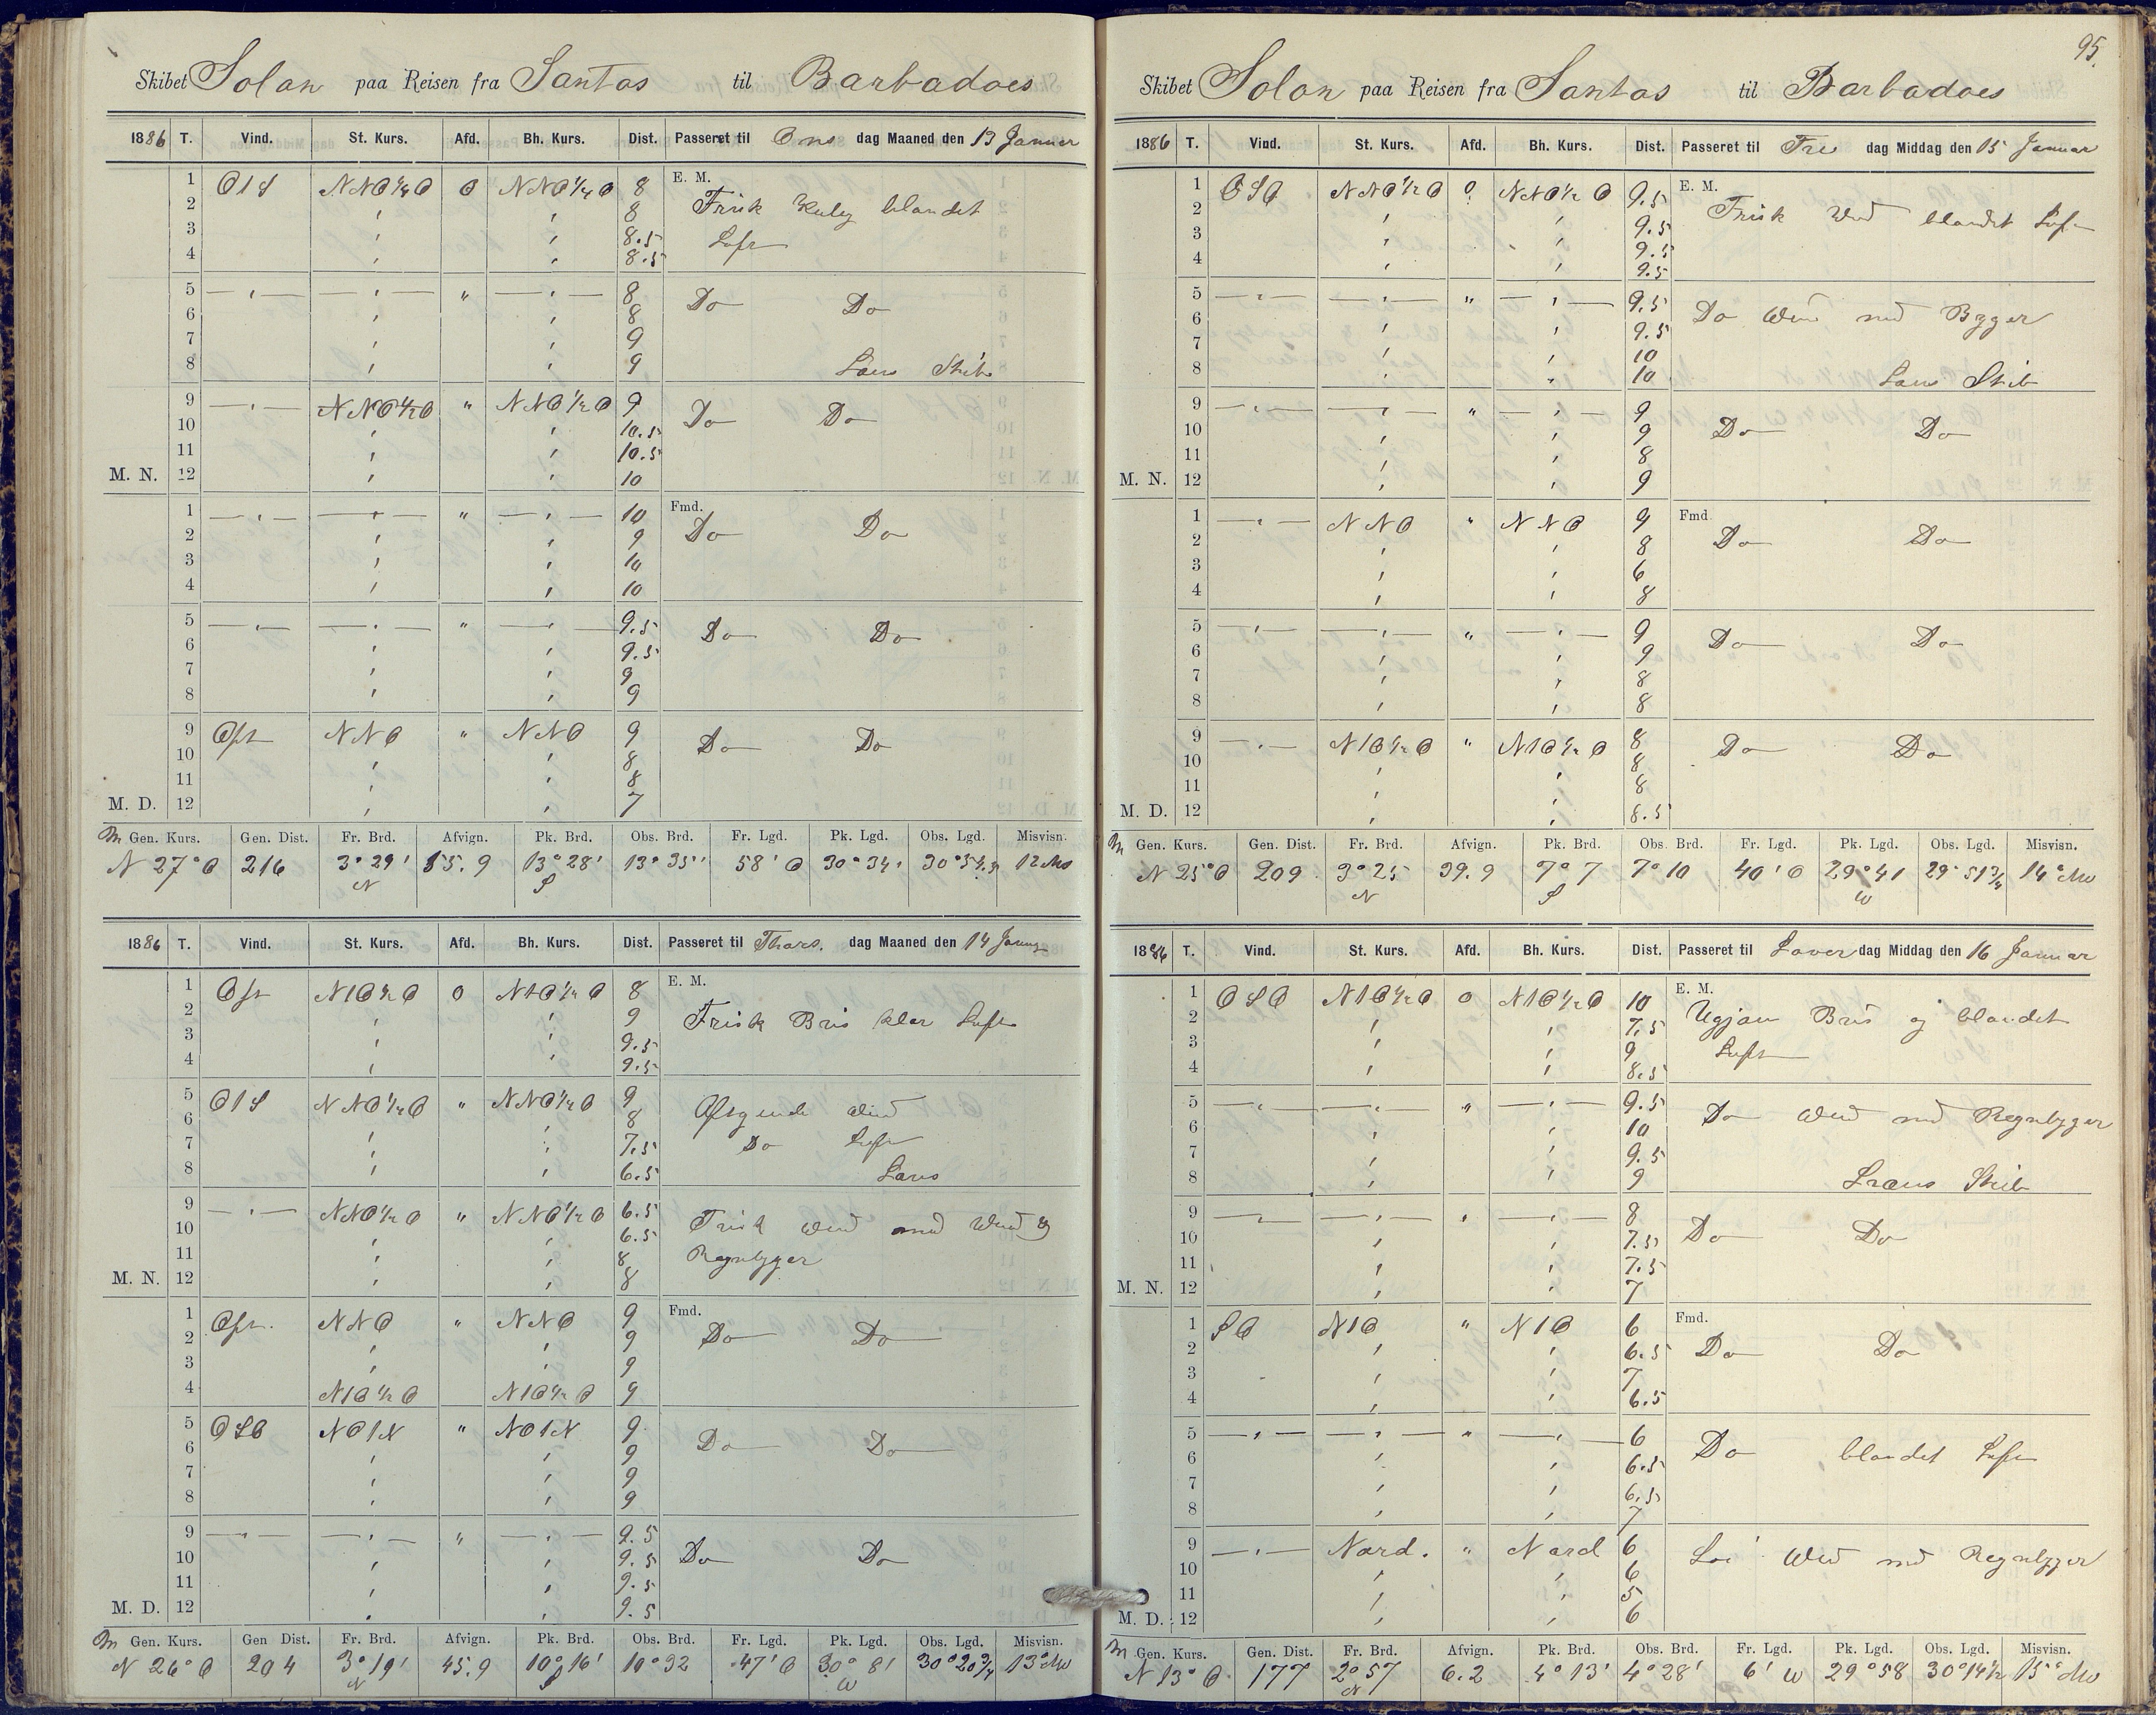 95.
Skibet Solon paa Reisen fra Santos til Barbadoes
1886 T. Vind. St. Kurs. Afd. Bh. Kurs. Dist. Passeret til Ons dag Maaned den 13 Januar
E. M.
1 O1S NNO¼O 0 NNO¼O 8 Frisk Kuling blandet
2 " " 8
3 " " 8.5 Luft
4 " " 8.5
5 — " — — " — " — " — 8 Do Do
6 " " 8
7 " " 9
8 " " 9 Læns Skib
9 — " — NNO½O " NNO½O 9 Do Do
10 " " 10.5
11 " " 10.5
M. N. 12 " " 10
Fmd.
1 — " — — " — " — " — 10 Do Do
2 " " 9
3 " " 10
4 " " 10
5 — " — — " — " — " — 9.5 Do Do
6 " " 9.5
7 " " 9
8 " " 9
9 Ost NNO " NNO 9 Do Do
10 " " 8
11 " " 8
M. D. 12 " " 7
M Gen. Kurs. Gen. Dist. Fr. Brd. Afvign. Pk. Brd. Obs. Brd. Fr. Lgd. Pk. Lgd. Obs. Lgd. Misvisn.
N 27° O 216 3° 29' N 55.9 13° 28' S 13° 35' 58' O 30° 34' 30° 34. 12 NW
1886 T. Vind. St. Kurs. Afd. Bh. Kurs. Dist. Passeret til Thors. dag Maaned den 14 Januar
E. M.
1 Ost N1O½O 0 N1O½O 8
2 " " 9 Frisk Bris klar Luft
3 " " 9.5
4 " " 9.5
5 O1S NNO½O " NNO½O 9 Aftagende Vind
6 " " 8
7 " " 7.5 Do Luft
8 " " 6.5 Læns
9 — " — NNO½O " NNO½O 6.5 Frisk Vind med Vind og
10 " " 6.5
11 " " 8 Regnbyger
M. N. 12 " " 8
Fmd.
1 Ost. NNO " NNO 9 Do Do
2 " " 9
3 " " 9
4 N1O½O N1O½O 9
5 OSO NO1N " NO1N 9 Do Do
6 " " 9
7 " " 9
8 " " 9
9 — " — — " — " — " — 9.5 Do Do
10 " " 9.5
11 " " 9.5
M. D. 12 " " 9.5
M Gen. Kurs. Gen Dist. Fr. Brd. Afvign. Pk. Brd. Obs. Brd. Fr. Lgd. Pk. Lgd. Obs. Lgd. Misvisn.
N 26° O 204 3° 19' N 45.9 10° 16' S 10° 32 47' O 30° 8' W 30° 20¾ 13° NW
Skibet Solon paa Reisen fra Santos til Barbadoes
1886 T. Vind. St. Kurs. Afd. Bh. Kurs. Dist. Passeret til Fre dag Middag den 15 Januar
E. M.
1 OSO NNO½O 0 NNO½O 9.5 Frisk Vind blandet Luft
2 " " 9.5
3 " " 9.5
4 " " 9.5
5 — " — — " — " — " — 9.5 Do Vind med Byger
6 " " 9.5
7 " " 10
8 " " 10 Læns Skib
9 — " — — " — " — " — 9 Do Do
10 " " 9
11 " " 8
M. N. 12 " " 9
Fmd.
1 — " — NNO " NNO 9 Do Do
2 " " 8
3 " " 6
4 " " 8
5 — " — — " — " — " — 9 Do Do
6 " " 9
7 " " 8
8 " " 8
9 — " — N1O½O " N1O½O 8 Do Do
10 " " 8
11 " " 8
M. D. 12 " " 8.5
M Gen. Kurs. Gen. Dist. Fr. Brd. Afvign. Pk. Brd. Obs. Brd. Fr. Lgd. Pk. Lgd. Obs. Lgd. Misvisn.
N 25° O 209 3° 25 N 39.9 7° 7 S 7° 10 40' O 29° 41 W 29° 51¾ 14° NW
1886 T. Vind. St. Kurs. Afd. Bh. Kurs. Dist. Passeret til Løver dag Middag den 16 Januar
E. M.
1 OSO N1O½O 0 N1O½O 10 Ugjævn Bris og blandet
2 " " 7.5
3 " " 9 Luft
4 " " 8.5
5 — " — — " — " — " — 9.5 Do Vind med Regnbyger
6 " " 10
7 " " 9.5
8 " " 9 Læns Skib
9 — " — — " — " — " — 8 Do Do
10 " " 7.5
11 " " 7.5
M. N. 12 " " 7
Fmd.
1 SO N1O " N1O 6 Do Do
2 " " 6.5
3 " " 7
4 " " 6.5
5 — " — — " — " — " — 6 Do blandet Luft
6 " " 6.5
7 " " 6.5
8 " " 7
9 — " — Nord. " Nord 6 Løi Vind med Regnbyger
10 " " 6
11 " " 5
M. D. 12 " " 6
M Gen. Kurs. Gen. Dist. Fr. Brd. Afvign. Pk. Brd. Obs. Brd. Fr. Lgd. Pk. Lgd. Obs. Lgd. Misvisn.
N 13° O 177 2° 57 N 6.2 4° 13' 4° 28' 6' W 29° 58 30° 14½ 15° NW